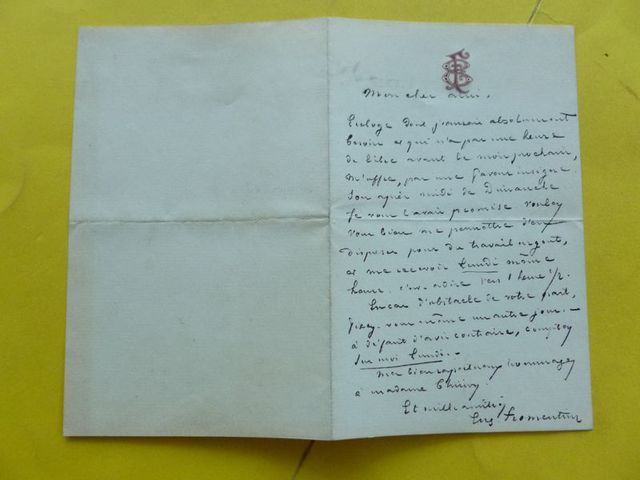 Mon cher ami,
dont j'avais absolument
besoin et qui n'a pas une heure
de libre avant le mois prochain,
m'offre, par une faveur insigne
son après midi de Dimanche
Je vous l'avais promise voulez
vous bien me permettre d'en
disposer pour du travail urgent,
et me recevoir Lundi même
heure, c'est à dire vers 1 heure 1/2.
En cas d'obstacle de votre part,
fixez-vous même un autre jour. -
à défaut d'avis contraire, comptez
sur moi Lundi. -
Mes bien respectueux hommages
à madame
Et mille amitiés
Eug Fromentin